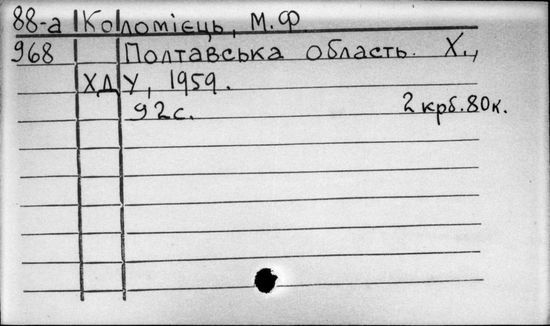 88-а Коломієць, М.Ф
968 Полтавська область. Х.,
ХДУ, 1959.
92с. 2 крб.80к.